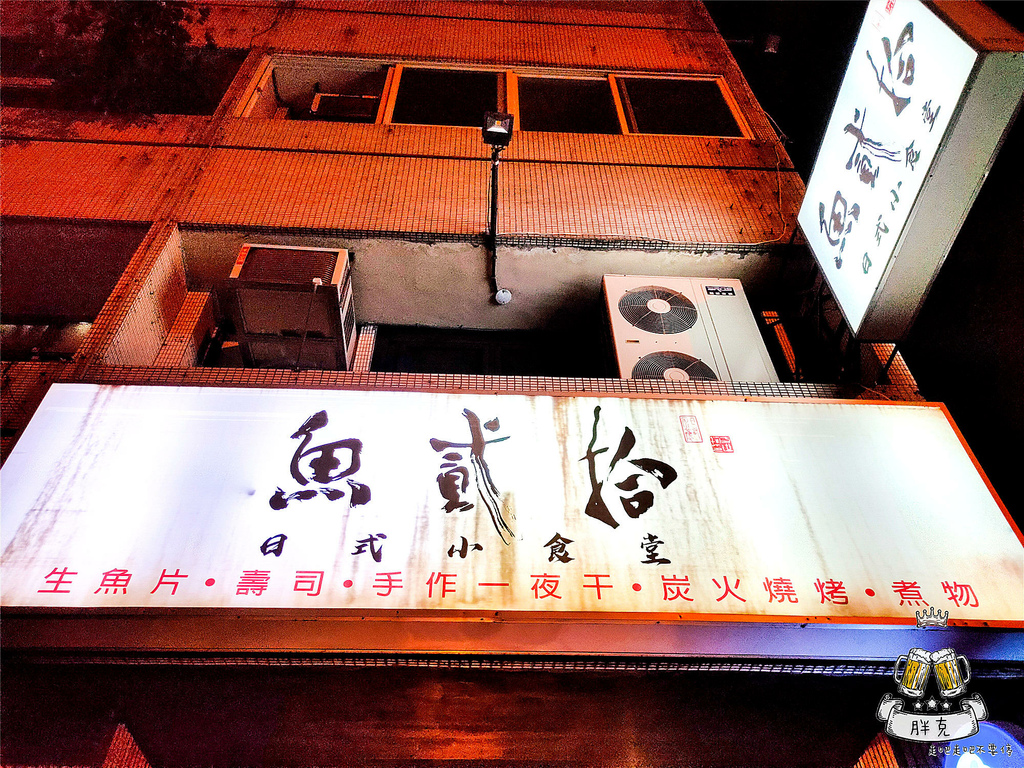 魚貳拾
日式小食堂
生魚片・壽司・手作一夜干・炭火燒烤・煮物
拾貳魚
日式小食堂
胖克
走吧走吧不要停